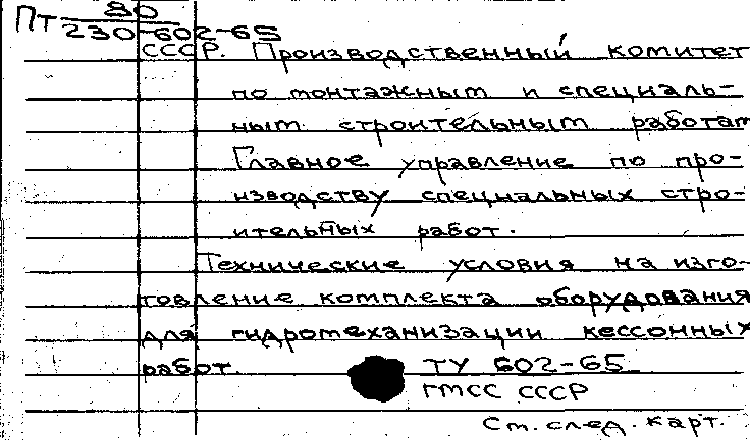 Пт 80
230-602-65
СССР. Производственный комитет
по монтажным и специаль-
ным строительным работам
Главное управление по про-
изводству специальных стро-
ительных работ.
Технические условия на изго-
товление комплекта оборудования
для гидромеханизации кессонных
работ.
ТУ 602-65
ГМСС СССР
См. след. карт.